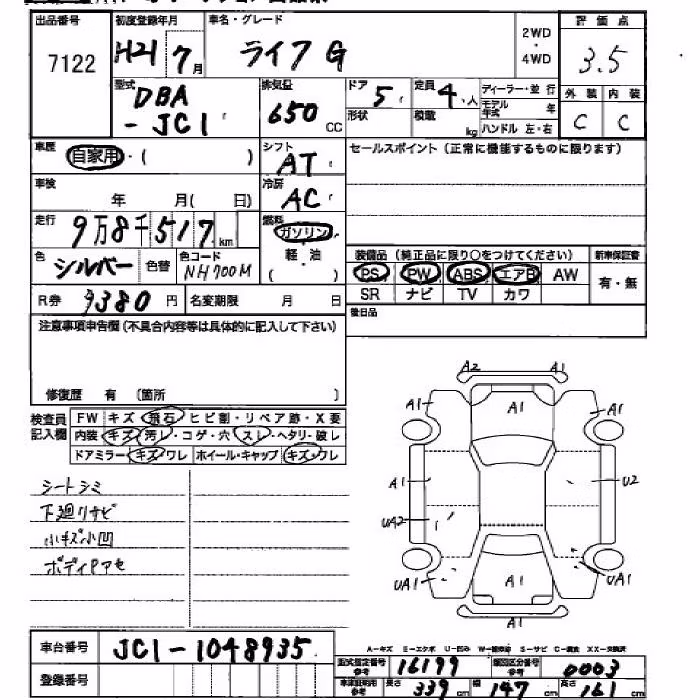 出品番号 初度登録年月 車名・グレード 2WD ・ 4WD 評価点
7122 H21 7月 ライフ G 3.5
型式 DBA -JC1 排気量 650 cc ドア 5 定員 4人 ディーラー・並行 外装 内装
形状 積載 kg モデル年式 年 C C
ハンドル 左・右
車歴 自家用・( ) シフト AT セールスポイント(正常に機能するものに限ります)
車検 年 月( 日) 冷房 AC
走行 9万8千517km 燃料 ガソリン
軽・油
( )
色 シルバー 色替 色コード NH700M 装備品(純正品に限り○をつけてください) 新車保証書
PS PW ABS エアB AW 有・無
R券 9380円 名変期限 月 日 SR ナビ TV カワ
注意事項申告欄(不具合内容等は具体的に記入して下さい) 後日品
修復歴 有 〔箇所 〕
検査員記入欄 FW キズ・飛石・ヒビ割・リペア跡・X要
内装・キズ・汚レ・コゲ・穴・スレ・ヘタリ・破レ
ドアミラー・キズ・ワレ ホイール・キャップ・キズ・ワレ
A2 A1
A1 A1 A1
A1 U2
UA2
UA1 A1 UA1
A1
シートシミ
下廻リサビ
小キズ小凹
ボディPアセ
車台番号 JC1-1048935
A-キズ E-エクボ U-凹み S-サビ
型式指定番号参考 16199 類別区分番号参考 0003
登録番号 長さ 339cm 幅 147cm 高さ 161cm